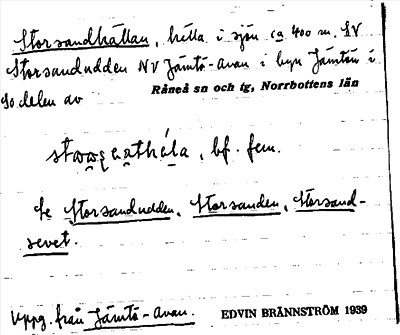 Storsandhällan, hälla i sjön ca 400 m. SV
Storsandudden NV Jämtö-avan i byn Jämtön i
so. delen av Råneå sn och tg, Norrbottens län
bf. fem.
Se Storsandudden, Storsanden, Storsand-
revet.
Uppg. från Jämtö-avan. EDVIN BRÄNNSTRÖM 1939